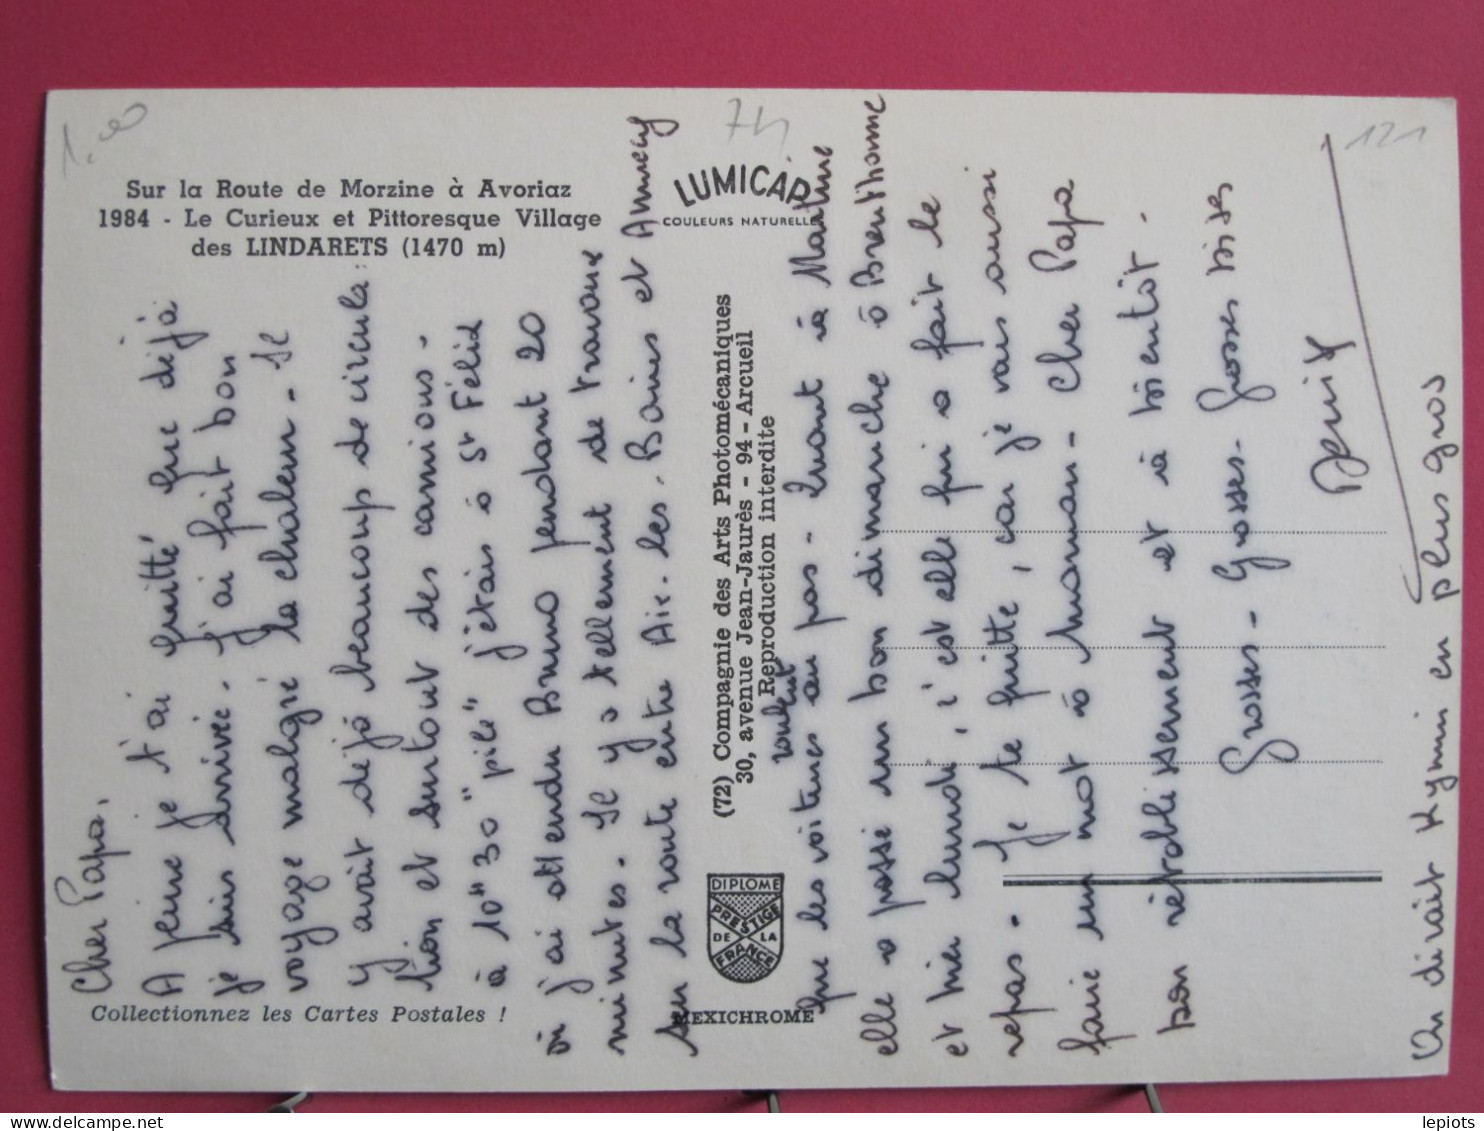 1,00
74
121
Sur la Route de Morzine à Avoriaz
1984 - Le Curieux et Pittoresque Village
des LINDARETS (1470 m)
LUMICAP
COULEURS NATURELLES
Cher Papa,
A peine je t'ai quitté que déjà
je suis arrivée. J'ai fait bon
voyage malgré la chaleur - Il
y avait déjà beaucoup de circula-
tion et surtout des camions -
à 10" 30" pile" j'étais à St Félix
où j'ai attendu Bruno pendant 20
minutes. Il y a tellement de travaux
sur la route entre Aix-les-Bains et Annecy
que les voitures roulent au pas - Quant à Martine
elle a passé un bon dimanche à Brenthonne
et hier lundi, c'est elle qui a fait le
repas. Je te quitte, car je vais aussi
faire un mot à maman - Cher Papa
bon rétablissement et à bientôt.
Grosses - Grosses - Grosses bises
Denix
On dirait Kymin en plus gros
(72) Compagnie des Arts Photomécaniques
30, avenue Jean-Jaurès - 94 - Arcueil
Reproduction interdite
DIPLOME
PRESTIGE
DE LA
FRANCE
MEXICHROME
Collectionnez les Cartes Postales !
lepiots